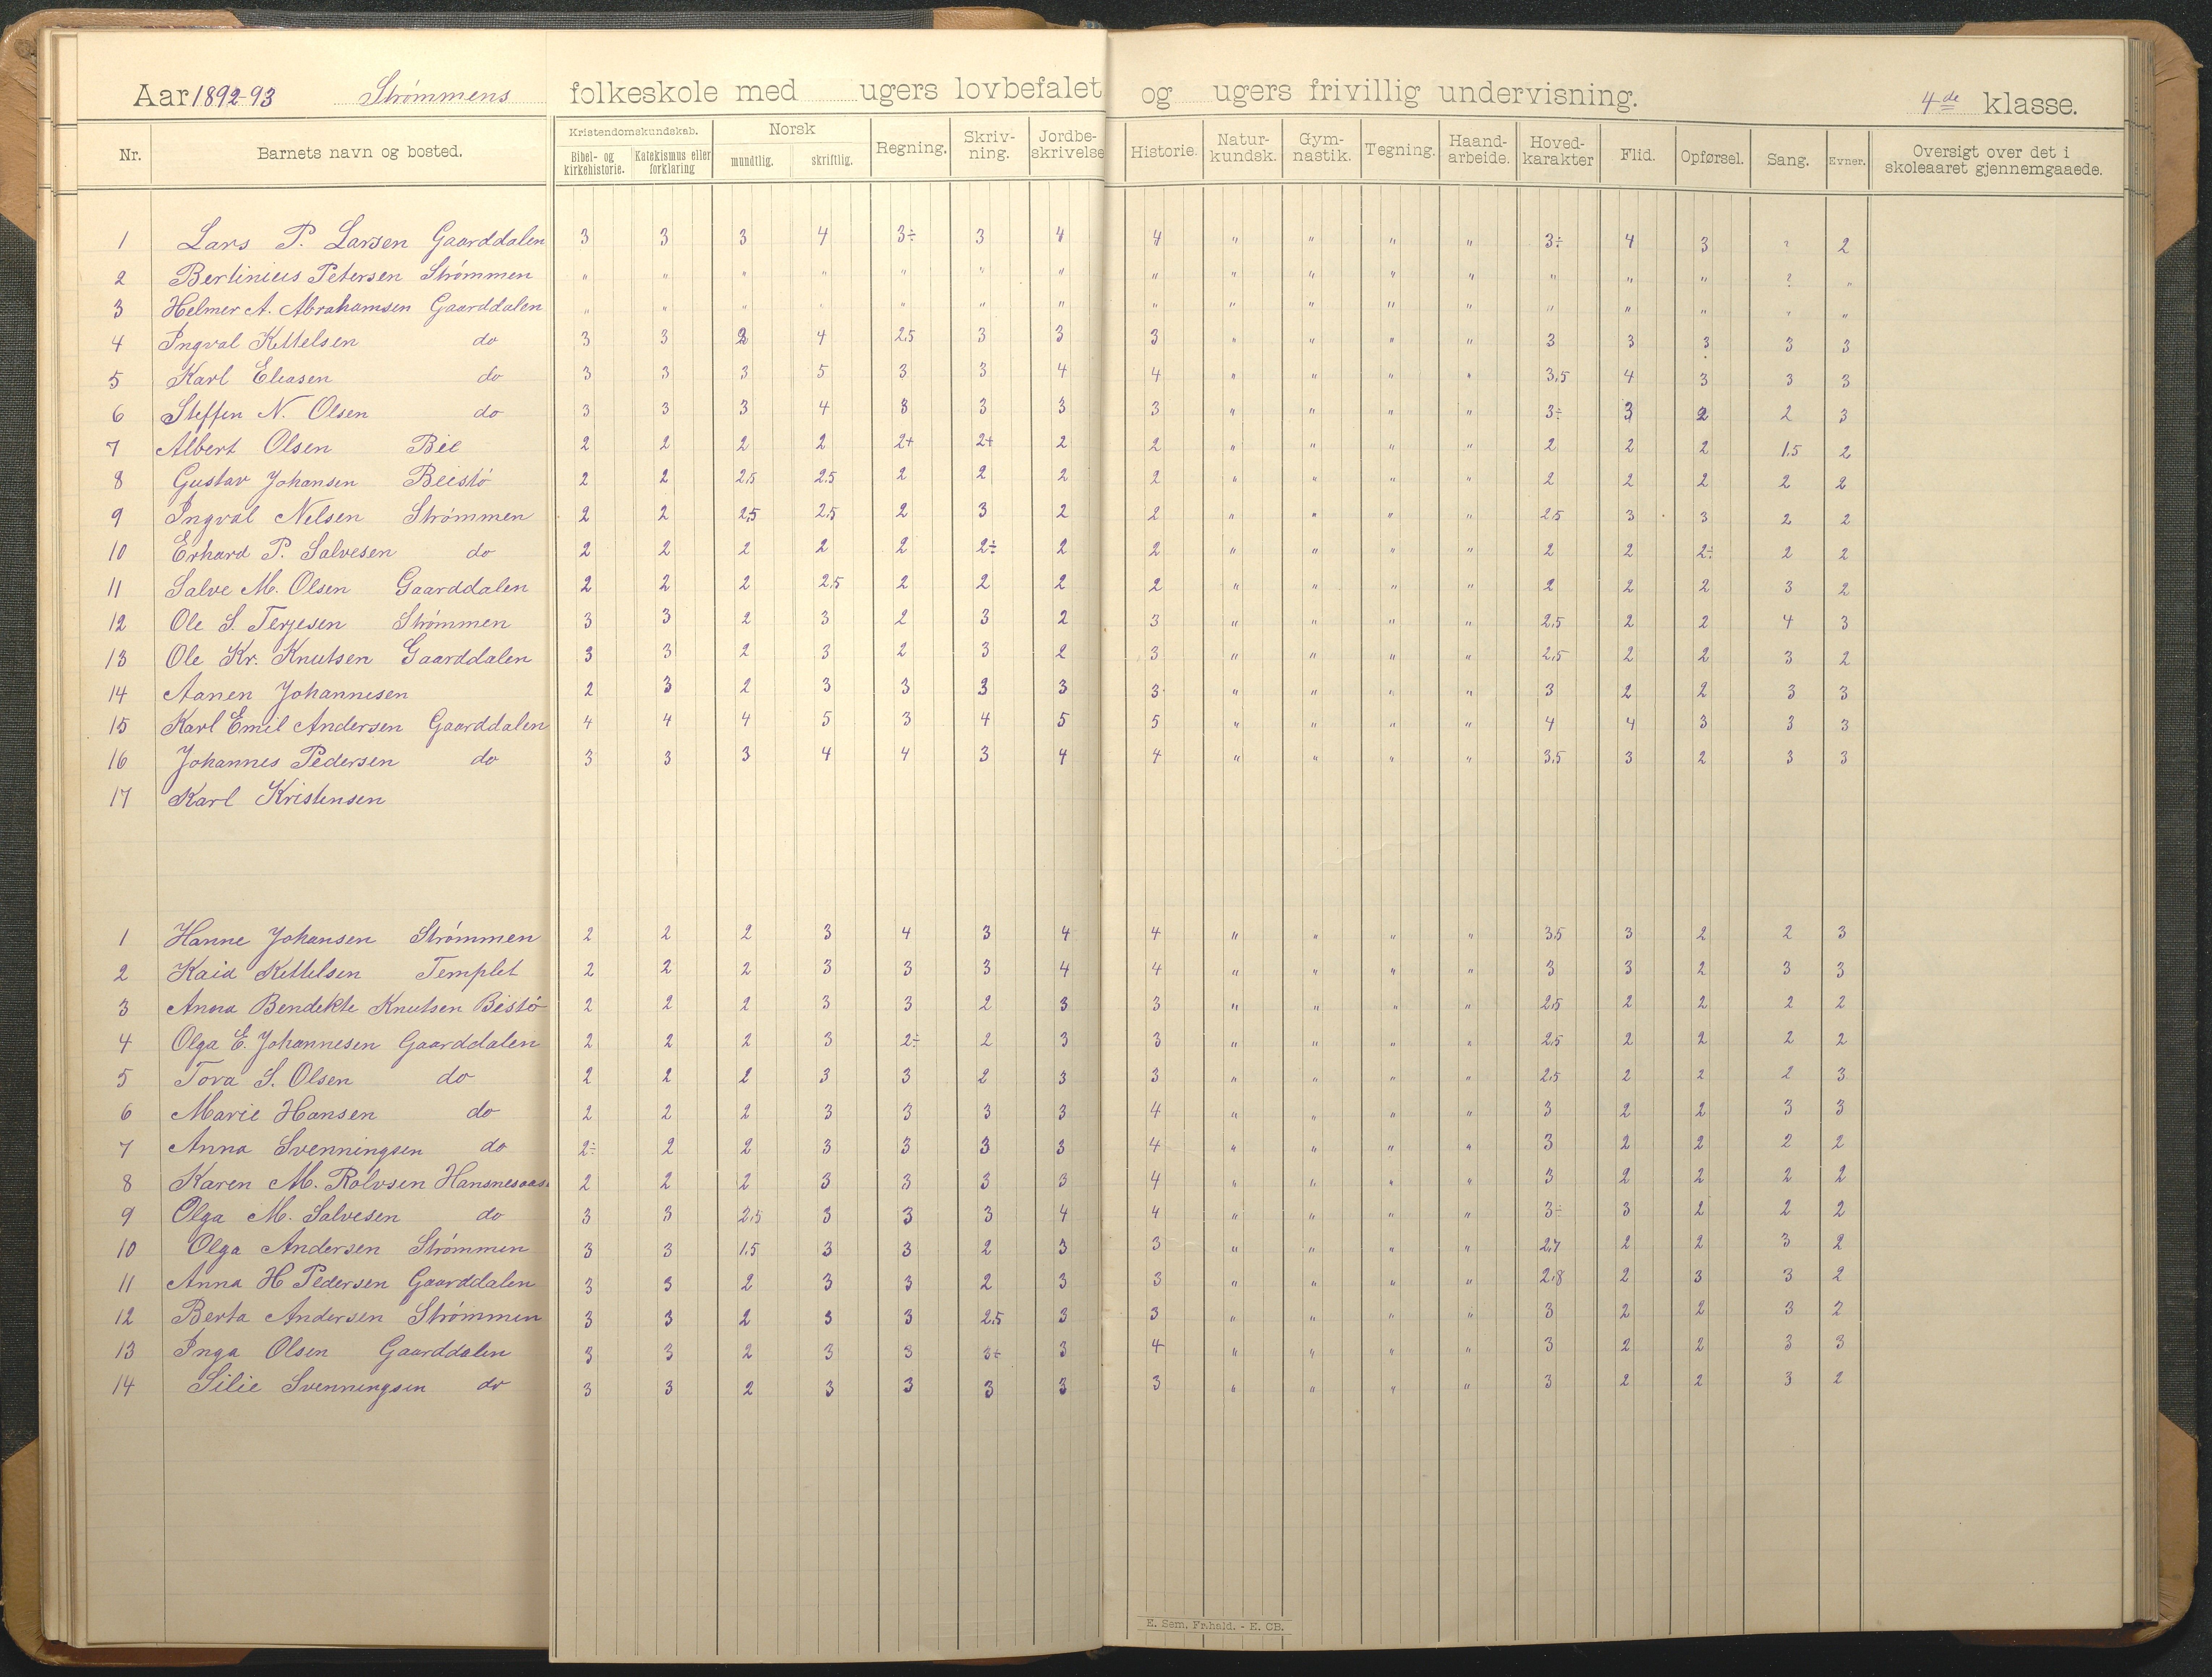 Aar 1892-93 Strømmens folkeskole med ugers lovbefalet og ugers frivillig undervisning. 4de klasse.
Nr. Barnets navn og bosted. Kristendomskundskab. Bibel- og kirkehistorie. Katekismus eller forklaring Norsk mundtlig. skriftlig. Regning. Skriv-ning. Jordbe-skrivelse Historie. Natur-kundsk. Gym-nastik. Tegning. Haand-arbeide. Hoved-karakter Flid. Opførsel. Sang. Evner. Oversigt over det i skoleaaret gjennemgaaede.
1 Lars P. Larsen Gaarddalen 3 3 3 4 3÷ 3 4 4 " " " " 3÷ 4 3 ? 2
2 Bertinius Petersen Strømmen " " " " " " " " " " " " " " " ? "
3 Helmer A. Abrahamsen Gaarddalen " " " " " " " " " " " " " " " " "
4 Ingval Kittelsen do 3 3 3 4 2,5 3 3 3 " " " " 3 3 3 3 3
5 Karl Eleasen do 3 3 3 5 3 3 4 4 " " " " 3,5 4 3 3 3
6 Steffen N. Olsen do 3 3 3 4 3 3 3 3 " " " " 3÷ 3 2 2 3
7 Albert Olsen Bie 2 2 2 2 2+ 2+ 2 2 " " " " 2 2 2 1,5 2
8 Gustav Johansen Beistö 2 2 2,5 2,5 2 2 2 2 " " " " 2 2 2 2 2
9 Ingval Nelsen Strømmen 2 2 2,5 2,5 2 3 2 2 " " " " 2,5 3 3 2 2
10 Erhard P. Salvesen do 2 2 2 2 2 2÷ 2 2 " " " " 2 2 2÷ 2 2
11 Salve M. Olsen Gaarddalen 2 2 2 2,5 2 2 2 2 " " " " 2 2 2 3 2
12 Ole S. Terjesen Strømmen 3 3 2 3 2 3 2 3 " " " " 2,5 2 2 4 3
13 Ole Kr. Knutsen Gaarddalen 3 3 2 3 2 3 2 3 " " " " 2,5 2 2 3 2
14 Aanen Johannesen 2 3 2 3 3 3 3 3 " " " " 3 2 2 3 3
15 Karl Emil Andersen Gaarddalen 4 4 4 5 3 4 5 5 " " " " 4 4 3 3 3
16 Johannes Pedersen do 3 3 3 4 4 3 4 4 " " " " 3,5 3 2 3 3
17 Karl Kristensen
1 Hanne Johansen Strømmen 2 2 2 3 4 3 4 4 " " " " 3,5 3 2 2 3
2 Kaia Kittelsen Templet 2 2 2 3 3 3 4 4 " " " " 3 3 2 3 3
3 Anna Bendekte Knutsen Bistö 2 2 2 3 3 2 3 3 " " " " 2,5 2 2 2 2
4 Olga E. Johannesen Gaarddalen 2 2 2 3 2÷ 2 3 3 " " " " 2,5 2 2 2 2
5 Tova S. Olsen do 2 2 2 3 3 2 3 3 " " " " 2,5 2 2 2 3
6 Marie Hansen do 2 2 2 3 3 3 3 4 " " " " 3 2 2 3 3
7 Anna Svenningsen do 2÷ 2 2 3 3 3 3 4 " " " " 3 2 2 2 2
8 Karen M. Rolvsen Hansnesaas 2 2 2 3 3 3 3 4 " " " " 3 2 2 2 2
9 Olga M. Salvesen do 3 3 2,5 3 3 3 4 4 " " " " 3÷ 3 2 2 2
10 Olga Andersen Strømmen 3 3 1,5 3 3 2 3 3 " " " " 2,7 2 2 3 2
11 Anna H Pedersen Gaarddalen 3 3 2 3 3 2 3 3 " " " " 2,8 2 3 3 2
12 Berta Andersen Strømmen 3 3 2 3 3 2,5 3 3 " " " " 3 2 2 3 2
13 Inga Olsen Gaarddalen 3 3 2 3 3 3÷ 3 4 " " " " 3 2 2 3 3
14 Silie Svenningsen do 3 3 2 3 3 3 3 3 " " " " 3 2 2 3 2
E. Sem, Fr.hald. - E. CB.